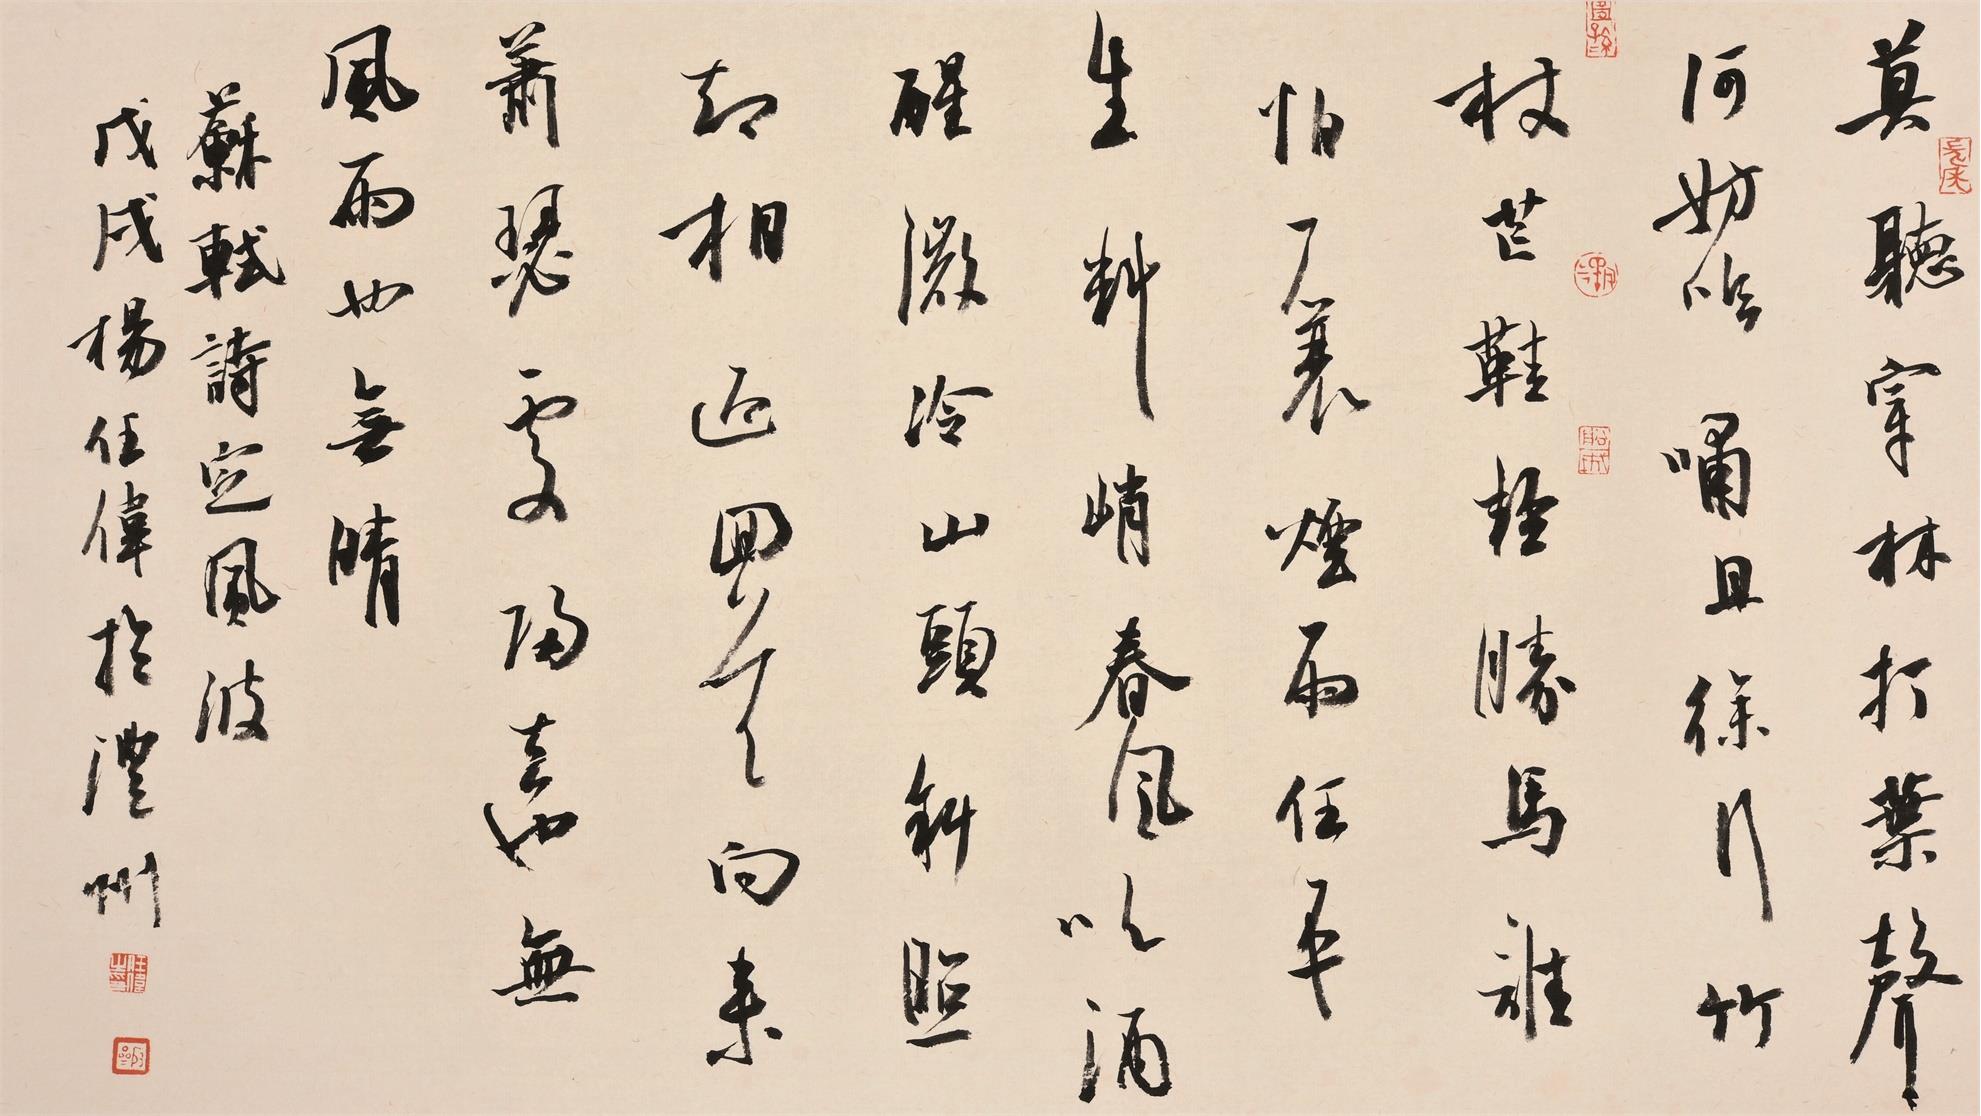 莫聽穿林打葉聲
何妨吟嘯且徐行竹
杖芒鞋輕勝馬誰
怕一蓑煙雨任平
生料峭春風吹酒
醒微冷山頭斜照
却相迎回首向來
蕭瑟處歸去也無
風雨也無晴
蘇軾詩定風波
戊戌楊任偉於澧州